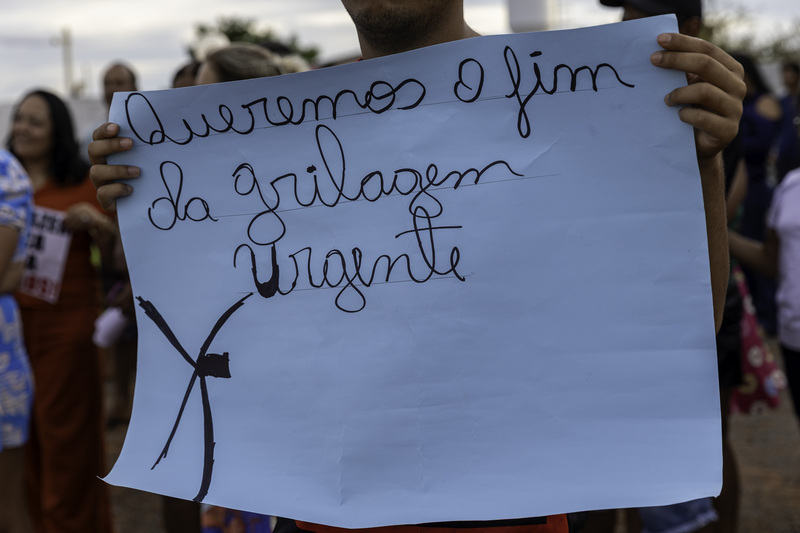 Queremos o fim
da grilagem
urgente